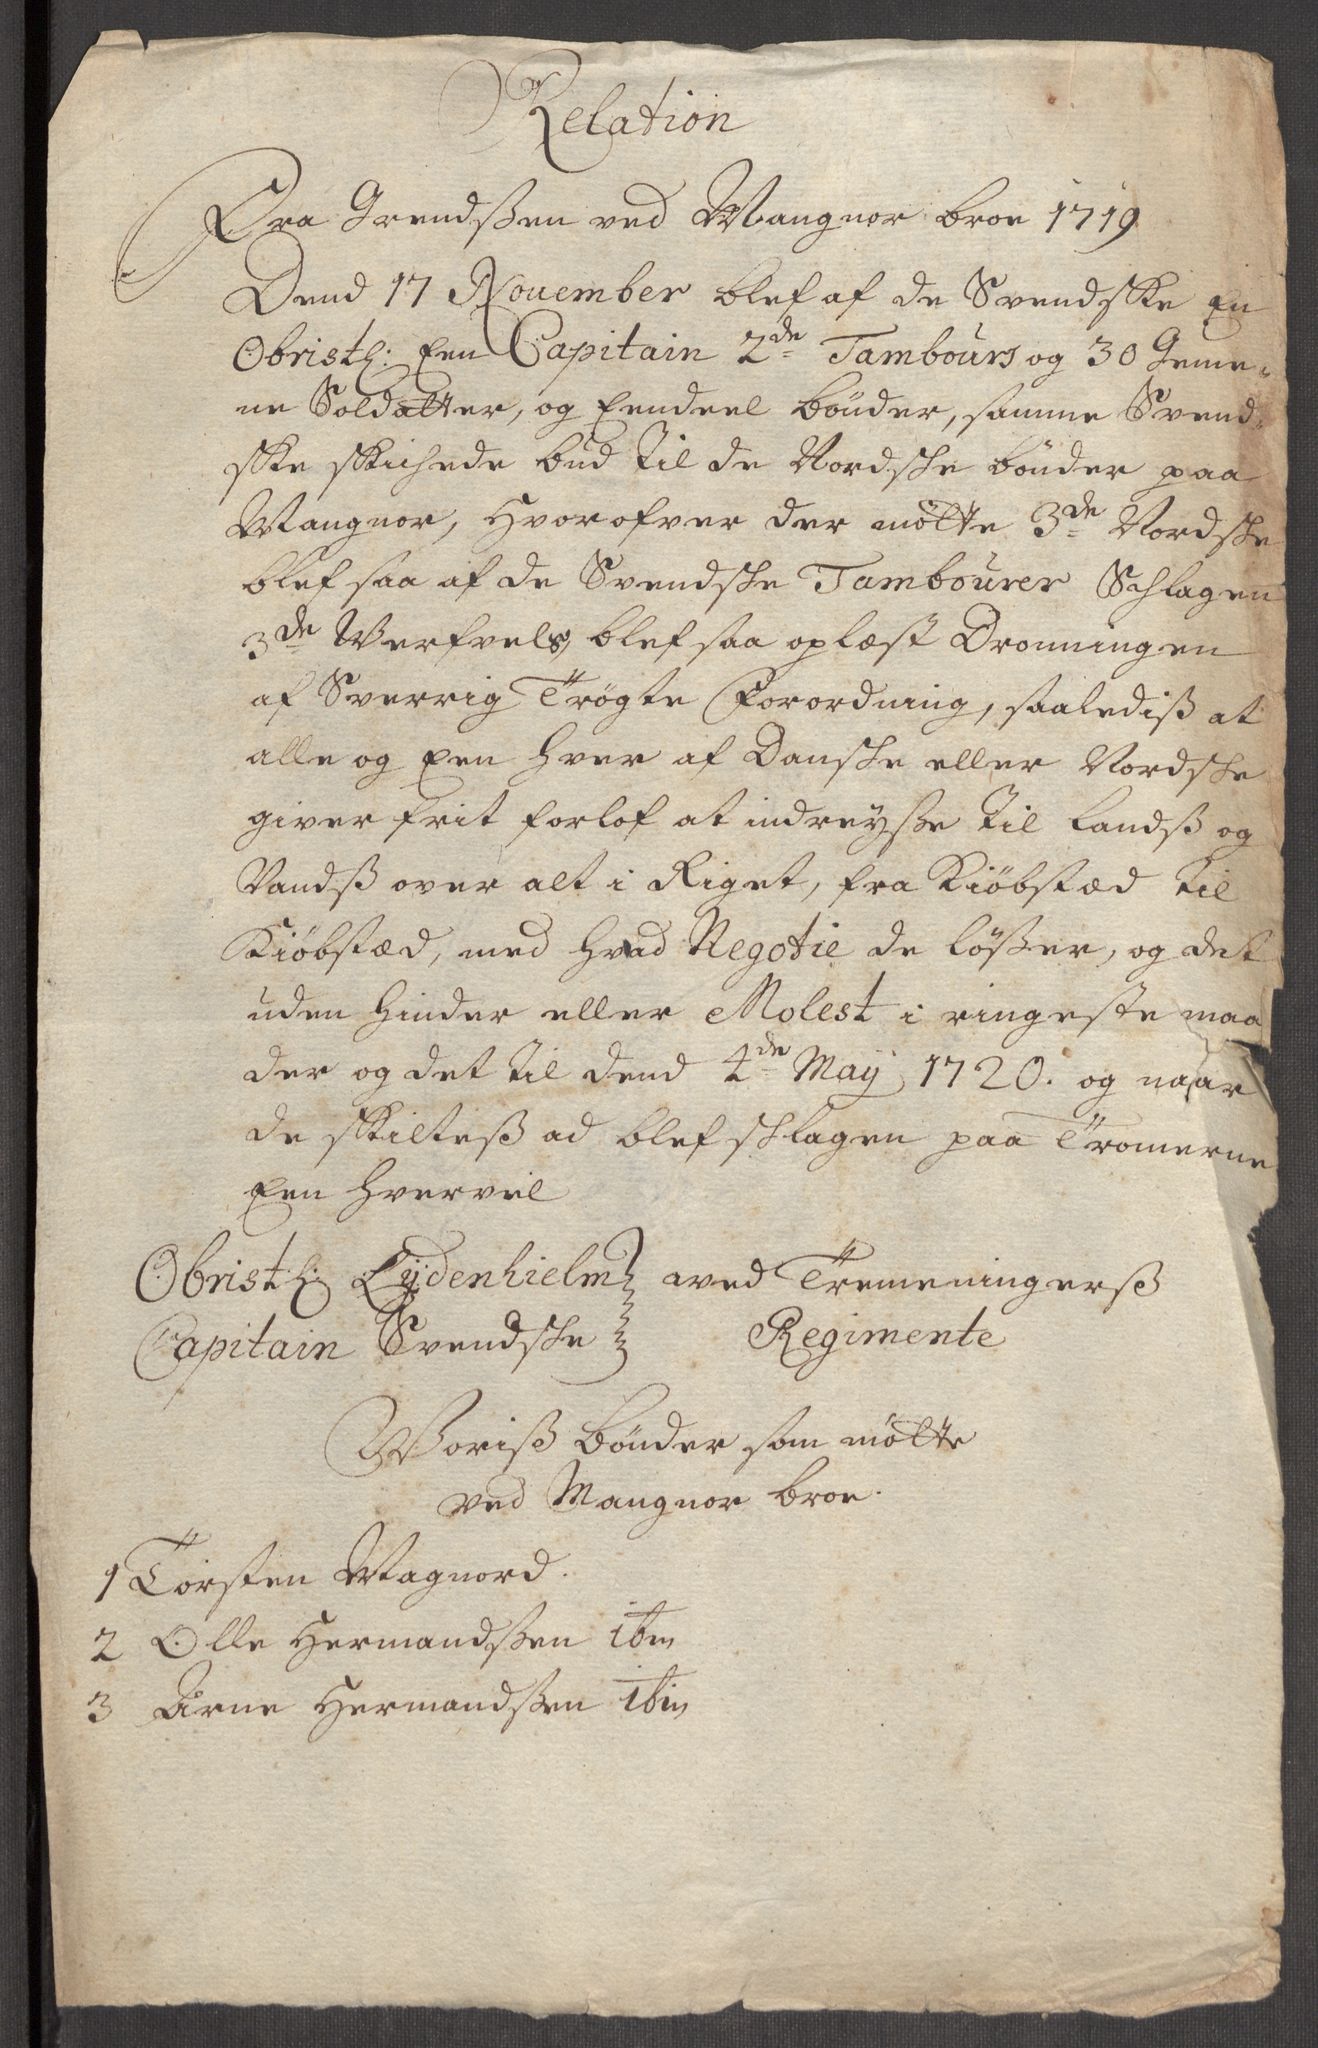 Relation
Fra Grendsßen ved Mangnor broe 1719
Dend 17 November blef af de Svendske En
Obristl: Een Capitain 2de Tambours og 30 Geme-
ne Soldatter, og Eendeel bønder, samme Svend-
ske skichede bud til de Nordske bønder paa
Mangnor, Hvorofver der møtte 3de Nordske
blef saa af de Svendske Tambourer Schlagen
3de Verfvels, blef saa oplæst Dronningen
af Sverrig Trøgte Forordning, saalediß at
alle og Een hver af Danske eller Nordske
giver frit forlof at indreyße til Landß og
Vandß over alt i Riget, fra Kiøbstæd til
Kiøbstæd, med hvad Negotie de lößer, og det
uden hinder eller Molest i ringeste maa
der og det til dend 4de May 1720. og naar
de skilteß ad blef schlagen paa Tromerne
Een hvervel
Obristl: Lydenhielm } aved Tremeningerß
Capitain Svendske } Regimente
Woriß bønder som møtte
ved Mangnor broe.
1 Torsten Magnord.
2 Olle Hermandsßen ibm
3 Arne Hermandsßen ibm